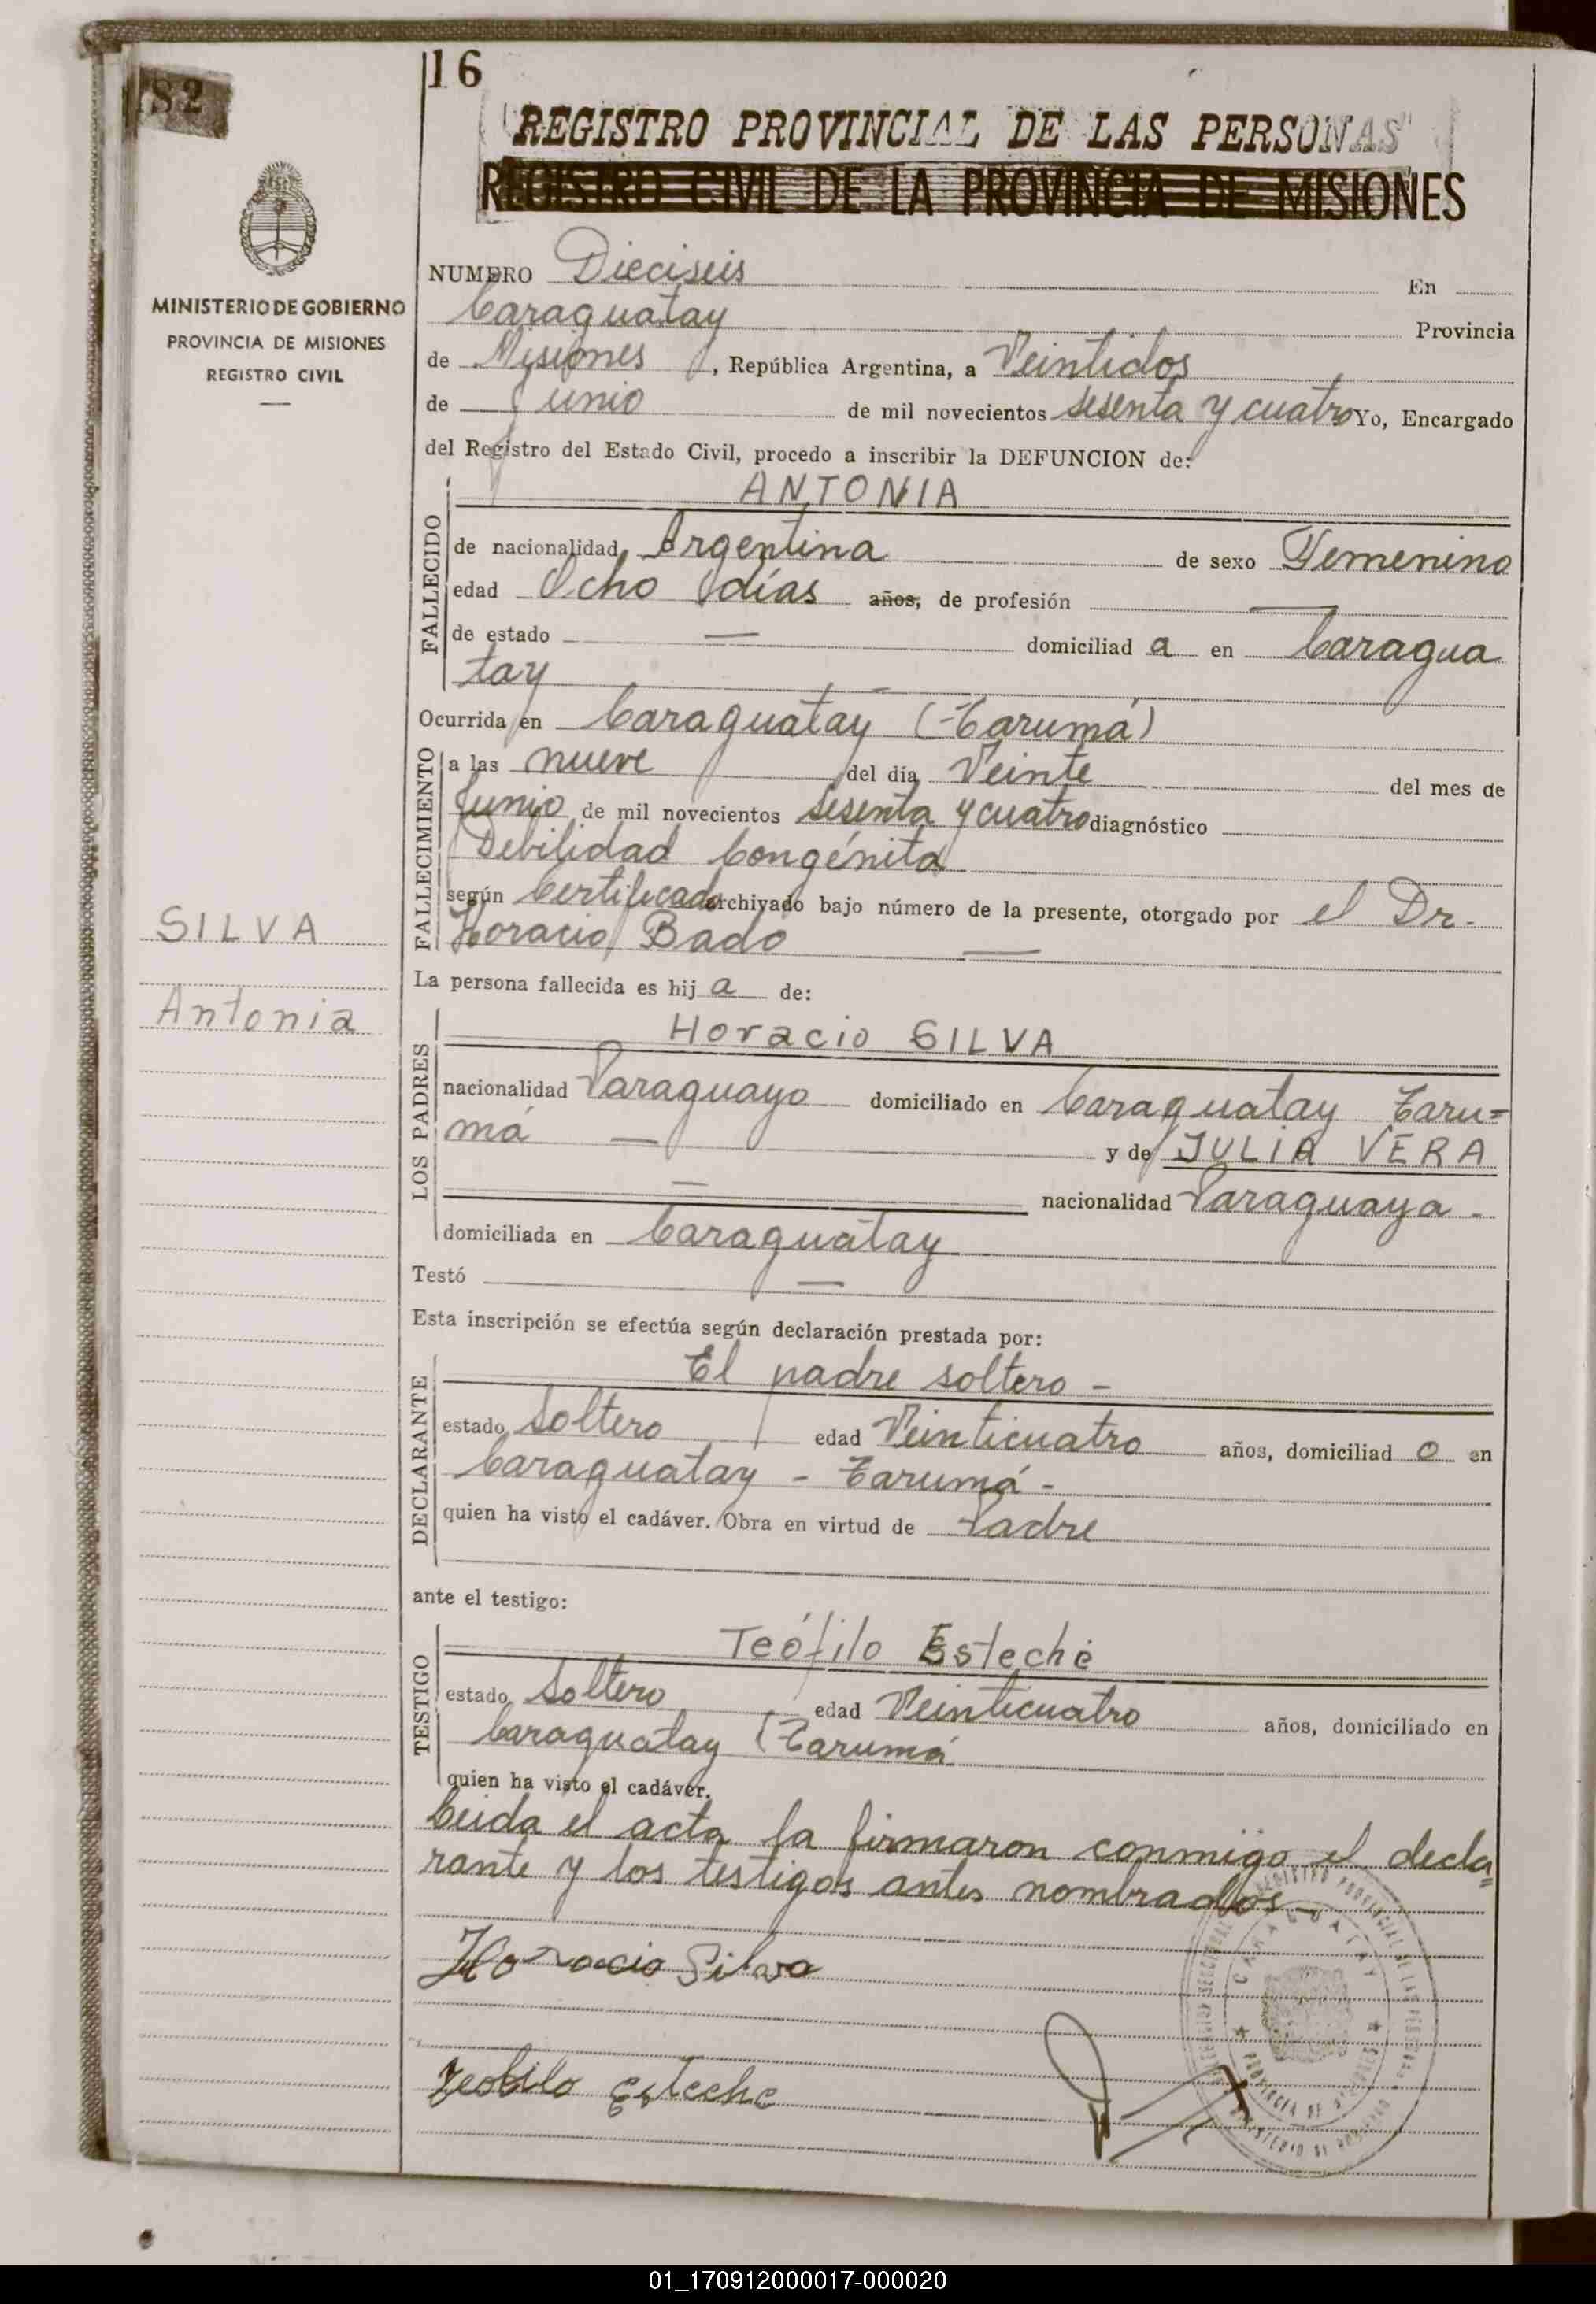 82
16
REGISTRO PROVINCIAL DE LAS PERSONAS
REGISTRO CIVIL DE LA PROVINCIA DE MISIONES
MINISTERIO DE GOBIERNO
PROVINCIA DE MISIONES
REGISTRO CIVIL
NUMERO Dieciseis En
Caraguatay Provincia
de Misiones, República Argentina, a Veintidos
de Junio de mil novecientos sesenta y cuatro Yo, Encargado
del Registro del Estado Civil, procedo a inscribir la DEFUNCION de:
FALLECIDO
ANTONIA
de nacionalidad Argentina de sexo Femenino
edad Ocho días años, de profesión —
de estado — domiciliad a en Caragua
tay
Ocurrida en Caraguatay (Tarumá)
FALLECIMIENTO
a las nueve del día Veinte del mes de
Junio de mil novecientos sesenta y cuatro diagnóstico
Debilidad Congénita
según Certificado archivado bajo número de la presente, otorgado por el Dr.
Horacio Bado —
SILVA
Antonia
La persona fallecida es hij a de:
LOS PADRES
Horacio SILVA
nacionalidad Paraguayo domiciliado en Caraguatay Taru=
má — y de JULIA VERA
— nacionalidad Paraguaya -
domiciliada en Caraguatay
Testó —
Esta inscripción se efectúa según declaración prestada por:
DECLARANTE
El padre soltero -
estado Soltero edad Veinticuatro años, domiciliad o en
Caraguatay - Tarumá -
quien ha visto el cadáver. Obra en virtud de Padre
ante el testigo:
TESTIGO
Teófilo Esteche
estado Soltero edad Veinticuatro años, domiciliado en
Caraguatay (Tarumá
quien ha visto el cadáver.
Leida el acta la firmaron conmigo el decla=
rante y los testigos antes nombrados -
Horacio Silva
Teofilo Esteche
REGISTRO PROVINCIAL DE LAS PERSONAS
CARAGUATAY
PROVINCIA DE MISIONES
01_170912000017-000020